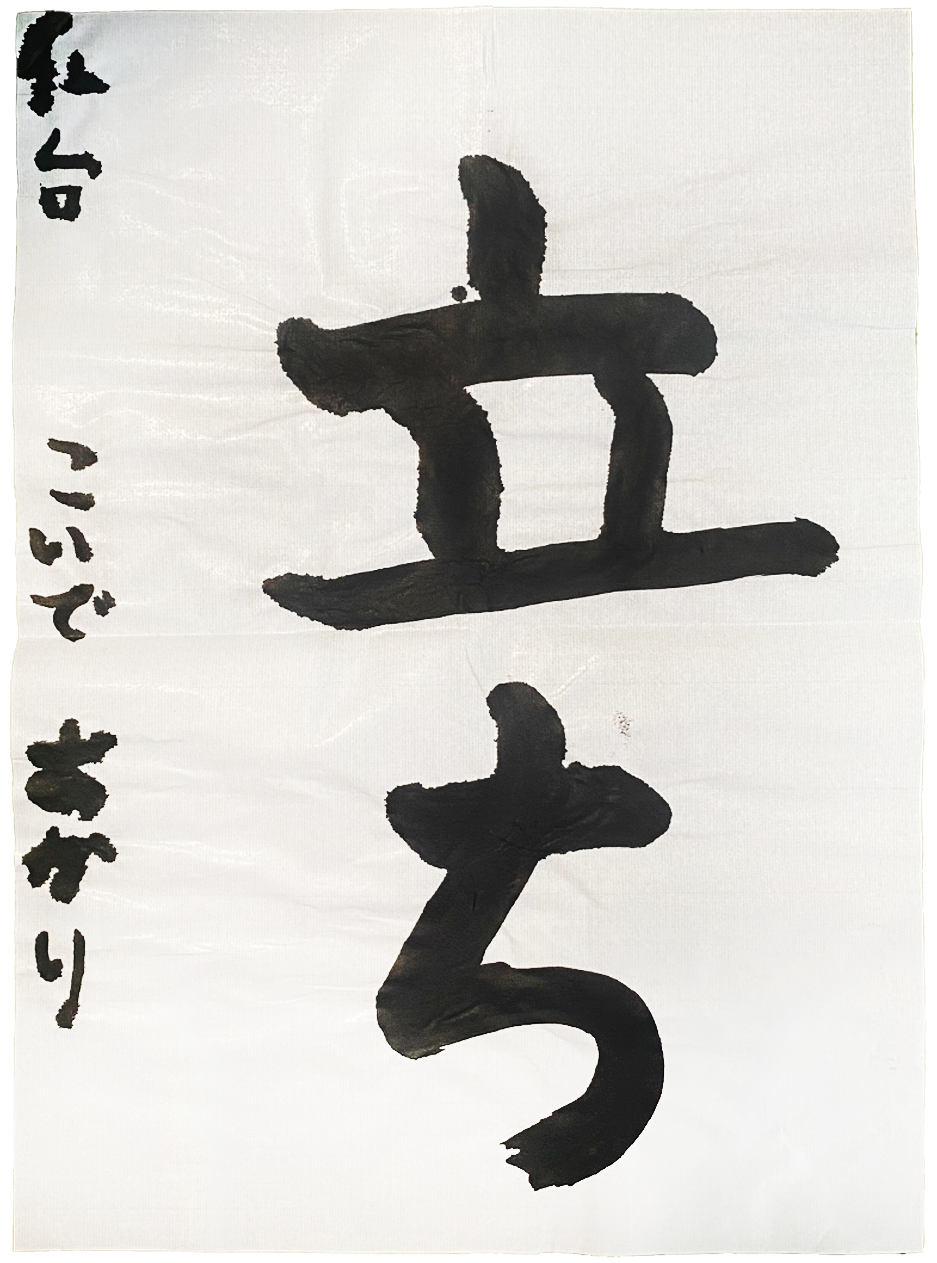 立ち
こいで あかり